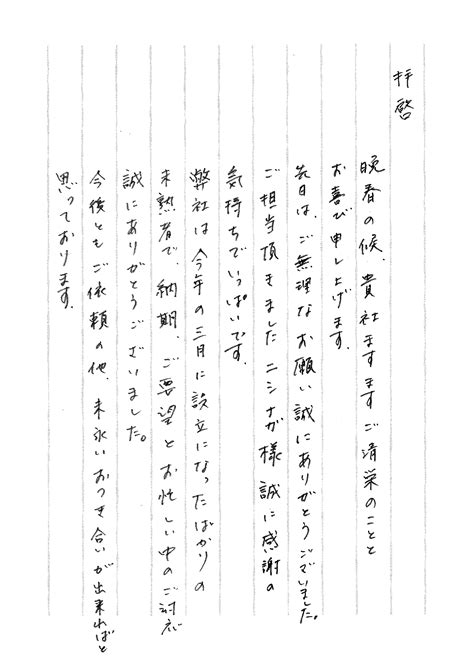 拝啓
晩春の候、貴社ますますご清栄のことと
お喜び申し上げます。
先日は、ご無理なお願い誠にありがとうございました。
ご担当頂きましたニシナガ様誠に感謝の
気持ちでいっぱいです。
弊社は今年の三月に設立になったばかりの
未熟者で、納期、ご要望とお忙しい中のご対応
誠にありがとうございました。
今後ともご依頼の他、末永いおつき合いが出来ればと
思っております。